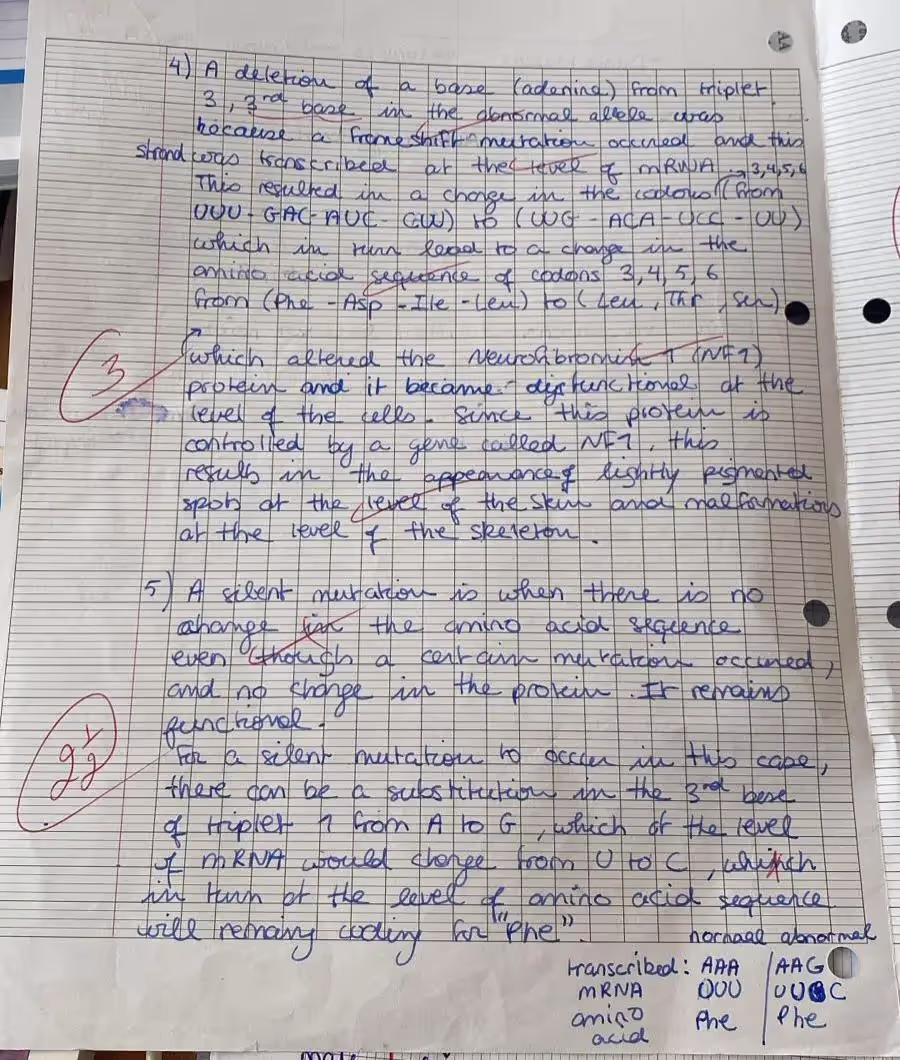 4) A deletion of a base (adenine) from triplet
3, 3rd base in the abnormal allele was
because a frameshift mutation occured and this
strand was transcribed at the level of mRNA
This resulted in a change in the codons (from → 3,4,5,6
UUU - GAC - AUC - CUU) to (UUG - ACA - UCC - UU)
which in turn lead to a change in the
amino acid sequence of codons 3,4,5,6
from (Phe - Asp - Ile - Leu) to (Leu, Thr, Ser)
3
which altered the Neurofibromin 1 (NF1)
protein and it became dysfunctional at the
level of the cells. Since this protein is
controlled by a gene called NF1, this
results in the appearance of lightly pigmented
spots at the level of the skin and malformations
at the level of the skeleton.
5) A silent mutation is when there is no
change in the amino acid sequence
even though a certain mutation occured,
and no change in the protein. It remains
functional.
2 1/2
For a silent mutation to occur in this case,
there can be a substitution in the 3rd base
of triplet 1 from A to G, which at the level
of mRNA would change from U to C, which
in turn at the level of amino acid sequence
will remain coding for "Phe".
normal abnormal
transcribed: AAA AAG
mRNA UUU UUC
amino Phe Phe
acid